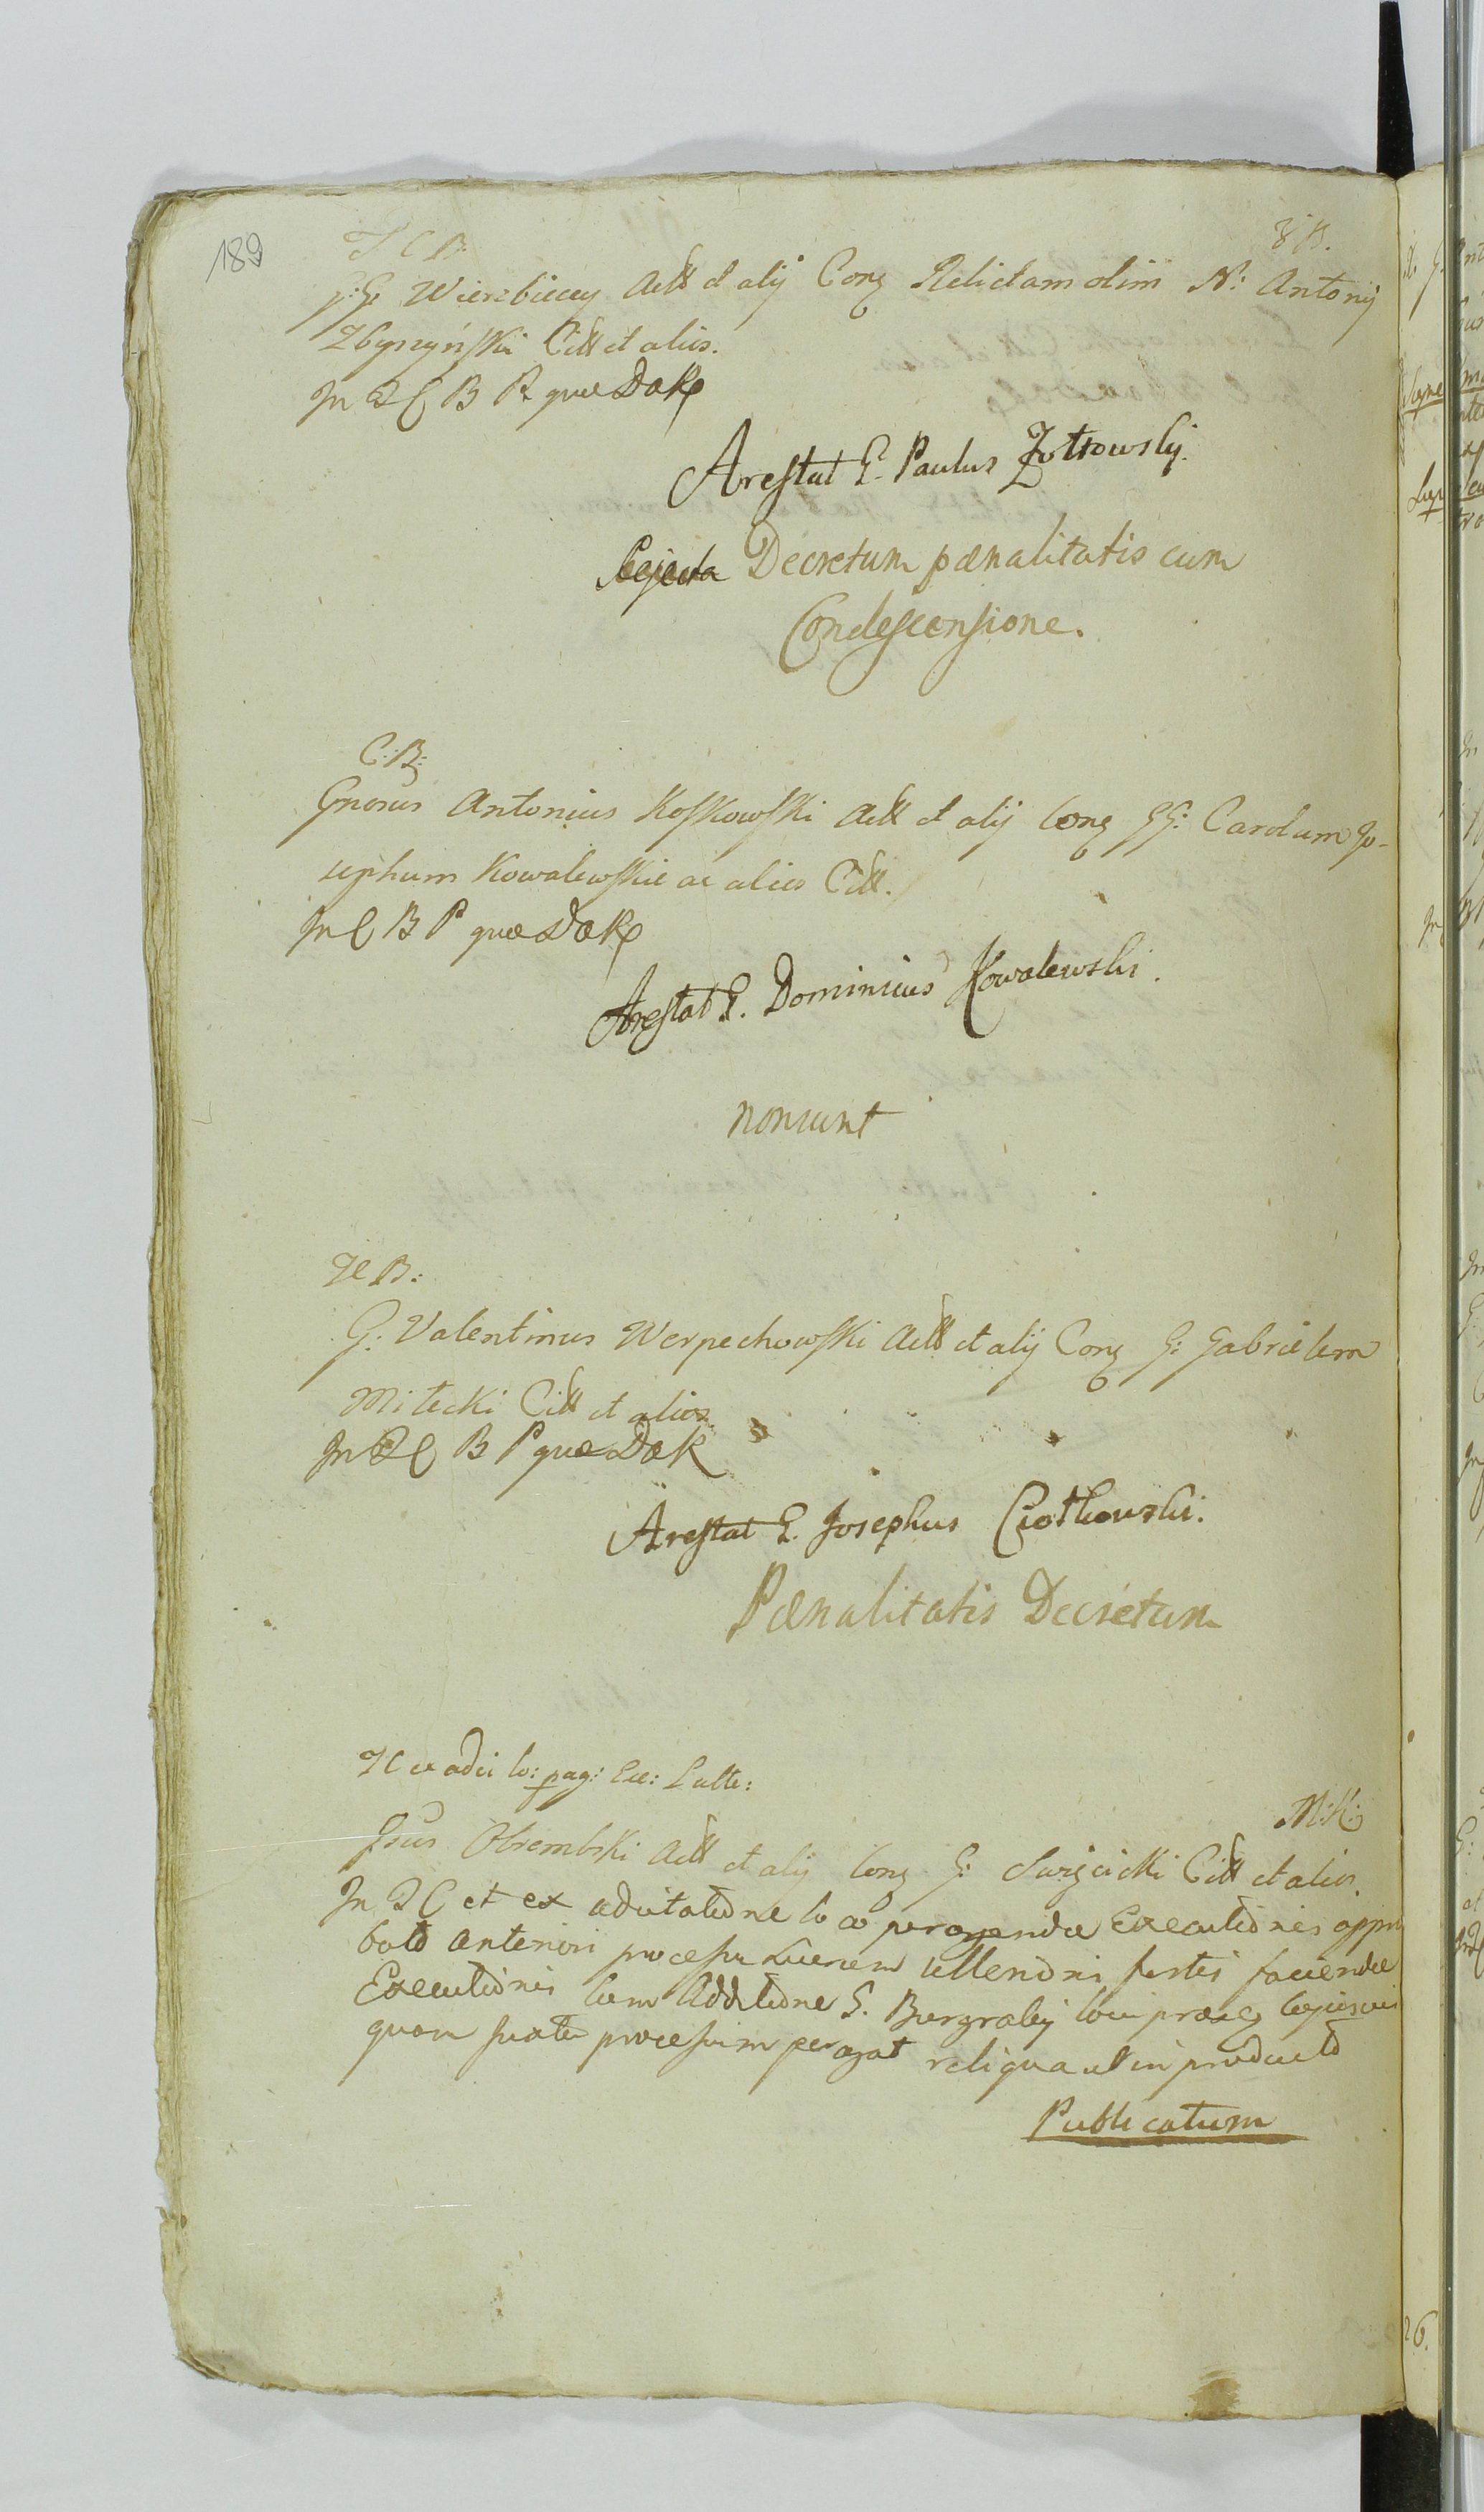 189
I C B. 8 B.
G: Wierzbiccy Actt et alij Cong Relictam olim N: Antonij
Zbyszyński Citt et alios.
In I C B P quæ D a K
Arestat G. Paulus Żółtowsky.
Decretum pænalitatis cum
Condescensione.
C: B:
Gnosus Antonius Koskowski Actt et alij Cong GG: Carolum Jo-
sephum Kowalewskie ac alios Citt.
In C B P quæ D a K
Arestat G. Dominicus Kowalewski.
non sunt
I C B:
G. Valentinus Werpechowski Actt et alij Cong G: Gabrielem
Milecki Citt et alios
In I C B P quæ D a K
Arestat G. Josephus Ciołkowski.
Pænalitatis Decretum
I C ex adci lo: pag: Exe:
M: K:
Gsus Obrembski Actt et alij Cong G: Citt et alios.
In I C et ex aducitatione lo ad peragendæ Executionis appro
bato anteriori processu faciendæ
Executionis cum Additione G. Burgraby
processum peragat reliqua ut in producto
Publicatum